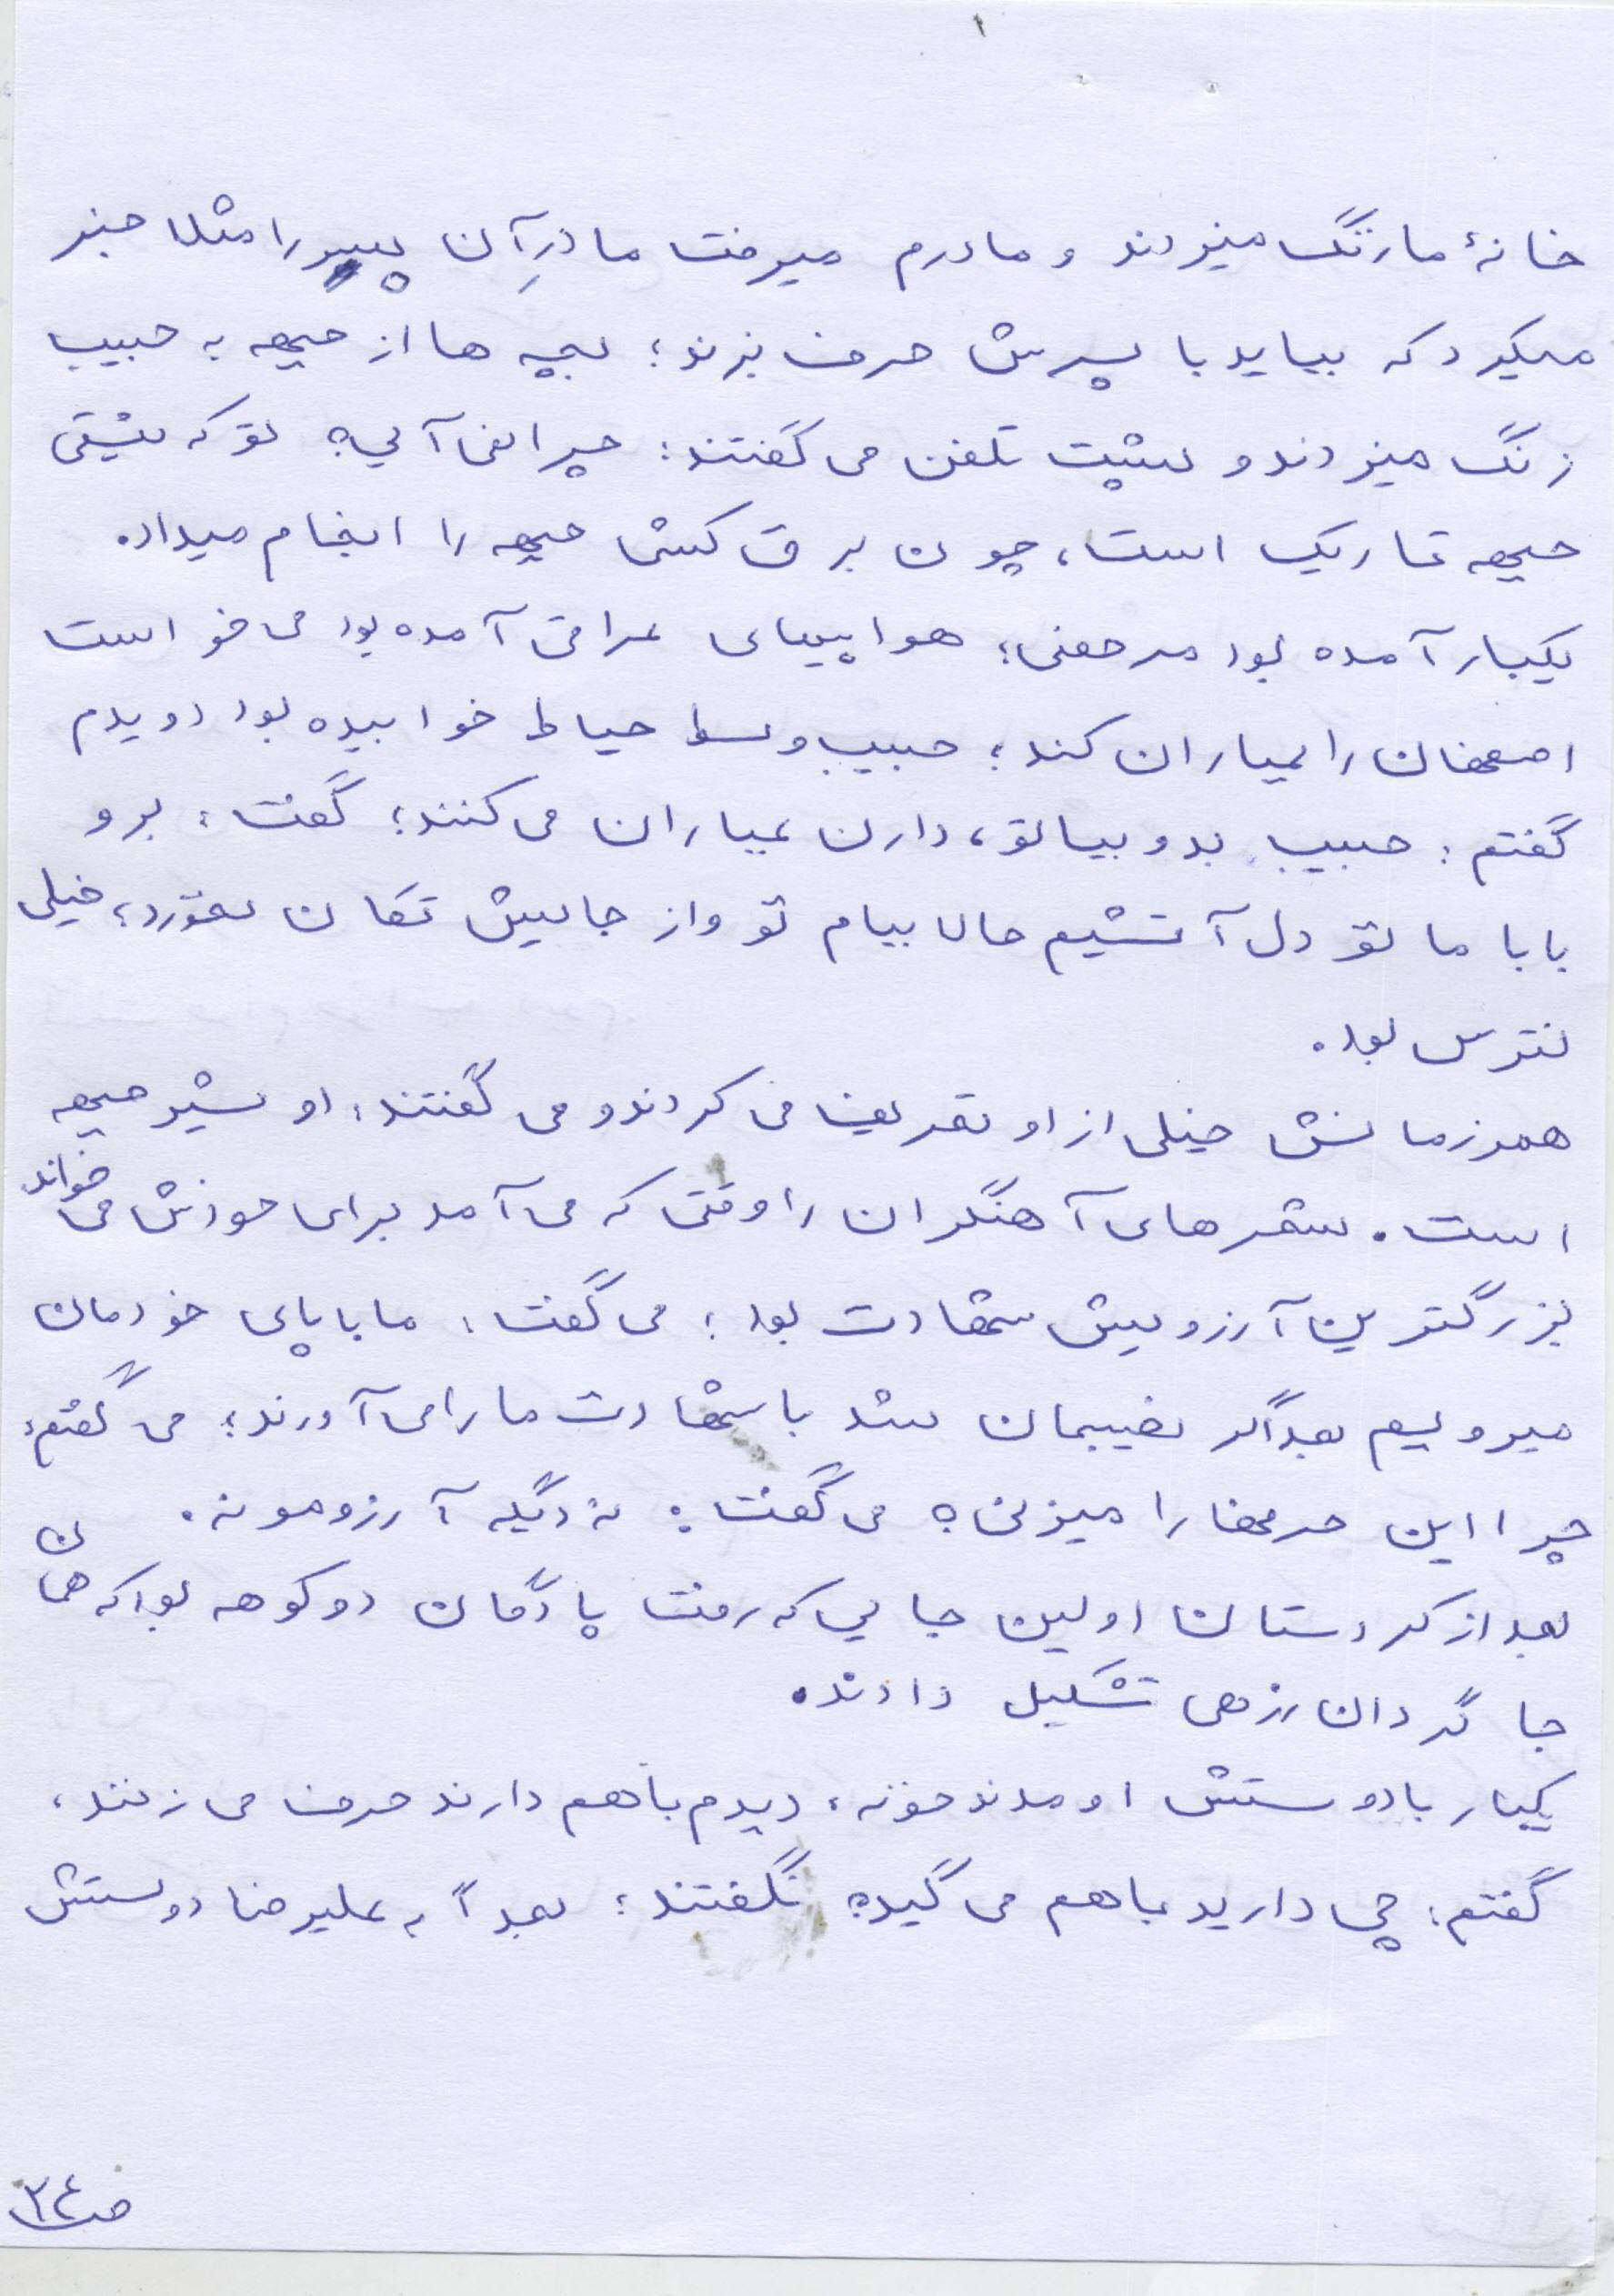 خانهٔ ما زنگ میزدند و مادرم میرفت مادرِ آن پسر را مثلا خبر
میکرد که بیاید با پسرش حرف بزند؛ بچه ها از جبهه به حبیب
زنگ میزدند و پشت تلفن می گفتند: چرا نمی آیی؟ تو که نیستی
جبهه تاریک است، چون برق کشی جبهه را انجام میداد.
یکبار آمده بود مرخصی؛ هواپیمای عراقی آمده بود می خواست
اصفهان را بمباران کند؛ حبیب وسط حیاط خوابیده بود دویدم
گفتم: حبیب بدو بیا تو، دارن بمباران می کنند؛ گفت: برو
بابا ما تو دل آتشیم حالا بیام تو و از جایش تکان نخورد؛ خیلی
نترس بود.
همرزمانش خیلی از او تعریف می کردند و می گفتند: او شیر جبهه
است. شعرهای آهنگران را وقتی که می آمد برای خودش می خواند
بزرگترین آرزویش شهادت بود؛ می گفت: ما با پای خودمان
میرویم بعد اگر نصیبمان شد با شهادت ما را می آورند؛ می گفتم:
چرا این حرفها را میزنی؟ می گفت: نه دیگه آرزومونه.
بعد از کردستان اولین جایی که رفت پادگان دوکوهه بود که همان
جا گردان رزمی تشکیل دادند.
یکبار با دوستش اومدند خونه، دیدم با هم دارند حرف می زنند،
گفتم: چی دارید با هم می گید؟ نگفتند؛ بعداً به علیرضا دوستش
ص ٢٤